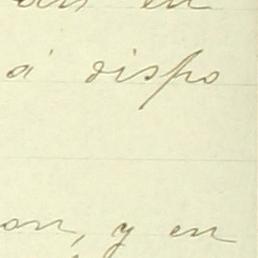 en
á dispo
on, y en